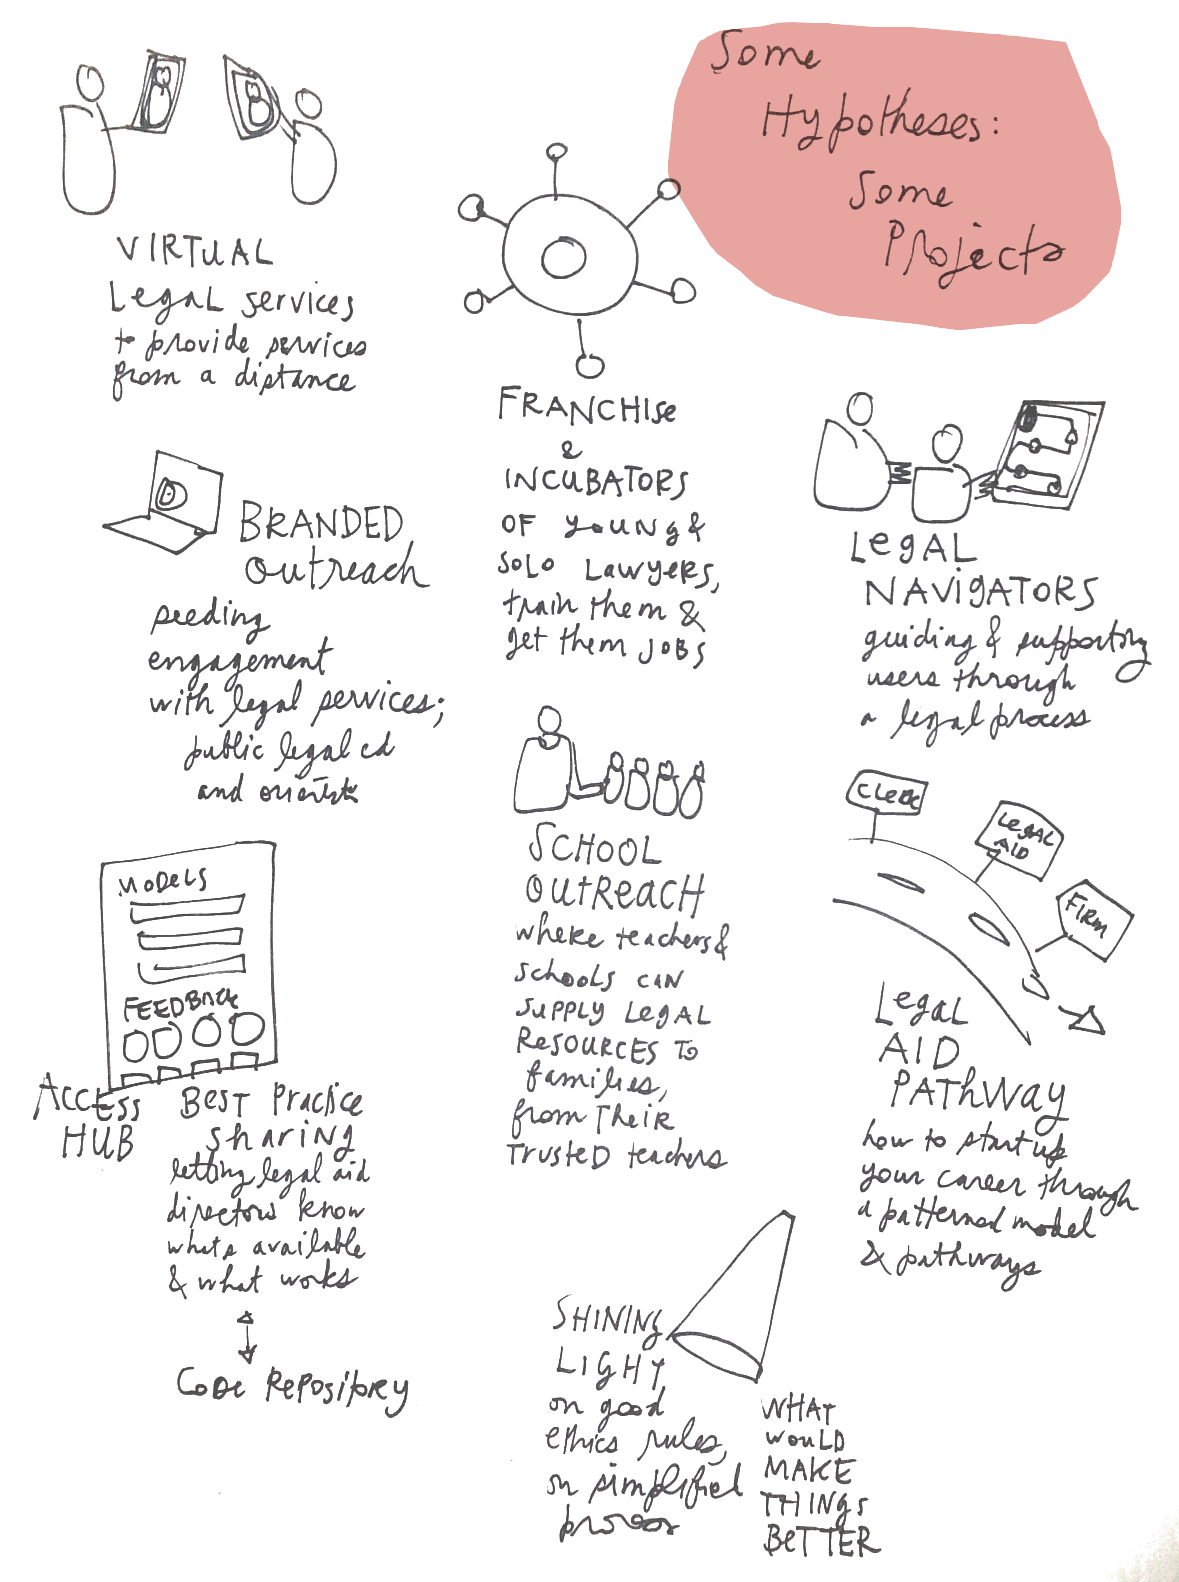 Some
Hypotheses:
Some
Projects
VIRTUAL
Legal services
to provide services
from a distance
FRANCHISE
&
INCUBATORS
OF YOUNG &
SOLO LAWYERS,
train them &
get them JOBS
LEGAL
NAVIGATORS
guiding & supporting
users through
a legal process
BRANDED
Outreach
seeding
engagement
with legal services;
public legal ed
and
SCHOOL
OUTREACH
where teachers &
schools can
supply legal
resources to
families,
from their
trusted teachers
CLERK
LEGAL
AID
FIRM
Legal
AID
PATHWAY
how to start up
your career through
a patterned model
& pathways
MODELS
FEEDBACK
ACCESS
HUB
Best Practice
sharing
letting legal aid
directors know
whats available
& what works
Code Repository
SHINING
LIGHT
on good
ethics rules,
on simplified
WHAT
WOULD
MAKE
THINGS
BETTER